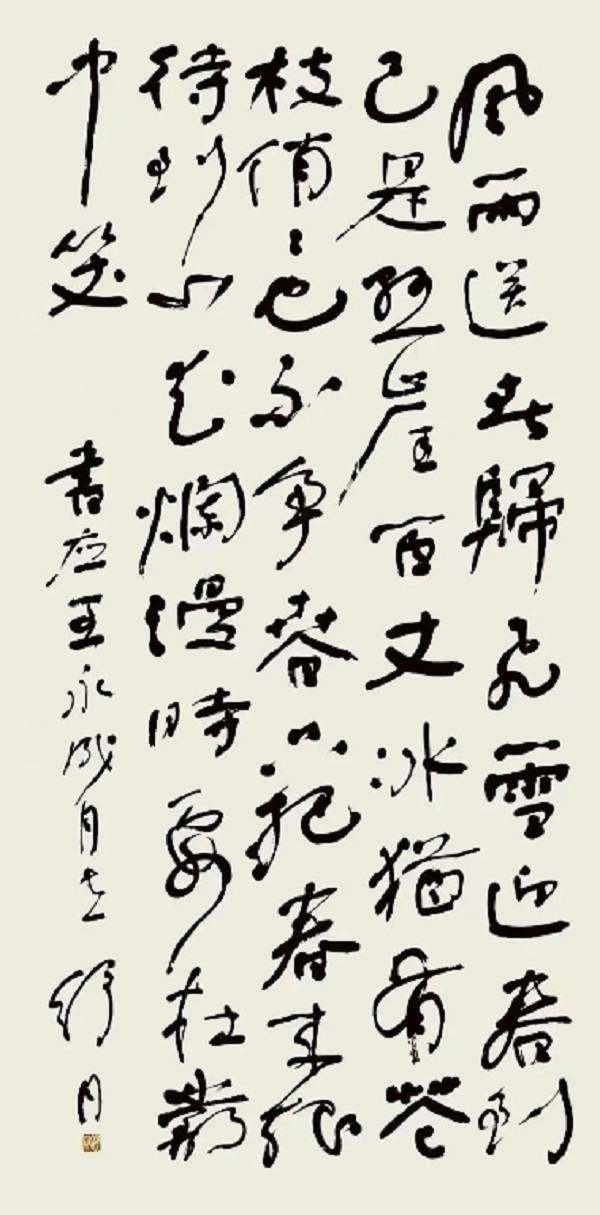 風雨送春歸飛雪迎春到
已是懸崖百丈冰猶有花
枝俏々也不争春只把春来報
待到山花爛漫時要在叢
中笑
書应王永成